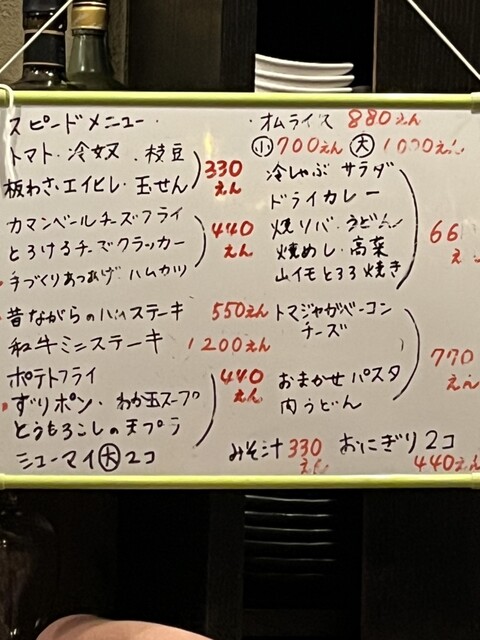 スピードメニュー
トマト・冷奴・枝豆
板わさ・エイヒレ・玉せん
330えん
カマンベールチーズフライ
とろけるチーズクラッカー
手づくりあつあげ ハムカツ
440えん
昔ながらのハムステーキ 550えん
和牛ミニステーキ 1200えん
ポテトフライ
ずりポン・わか玉スープ
とうもろこしの天プラ
シューマイ大2コ
440えん
・オムライス 880えん
小 700えん 大 1000えん
冷しゃぶサラダ
ドライカレー
焼ソバ・うどん
焼めし・高菜
山イモとろろ焼き
66
え
トマジャがベーコン
チーズ
おまかせパスタ
肉うどん
770えん
みそ汁 330えん おにぎり2コ
440えん